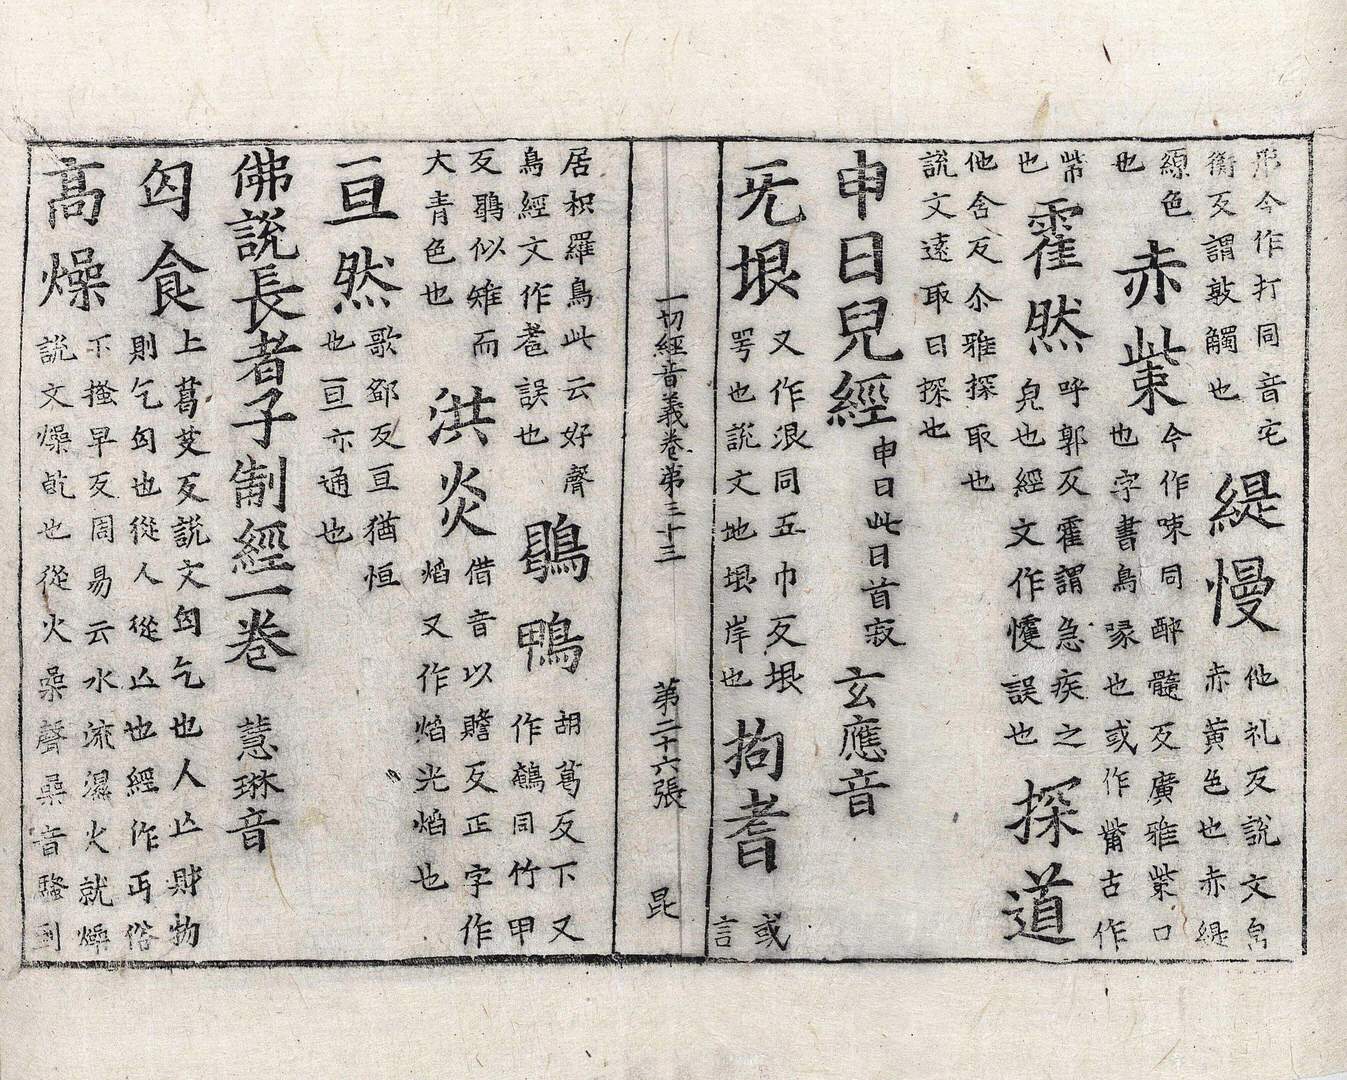 今作打同音宅
衡反謂敦觸也
緹慢
他礼反説文帛
赤黃色也赤緹
縓色
也
赤觜
今作㖢同醉髓反廣雅觜口
也字書鳥喙也或作觜古作
㭰
也
霍然
呼郭反霍謂急疾之
皃也經文作㦜誤也
探道
他含反尒雅探取也
説文遠取曰探也
申日兒經
申日此日首寂
玄應音
无垠
又作泿同五巾反垠
咢也説文地垠岸也
拘耆
或
言
一切經音義卷第三十三 第二十六張 昆
居枳羅鳥此云好聲
鳥經文作耆誤也
鶡鴨
胡葛反下又
作同竹甲
反鶡似雉而
大青色也
洪炎
借音以贍反正字作
焰又作焰光焰也
亘然
歌鄧反亘猶恒
也亘亦通也
佛說長者子制經一卷 慧琳音
匃食
上葛艾反説文匃乞也人亡財物
則乞匃也從人從亡也經作丐俗
高燥
下掻早反周易云水流濕火就燥
説文燥乾也從火喿聲喿音騷到